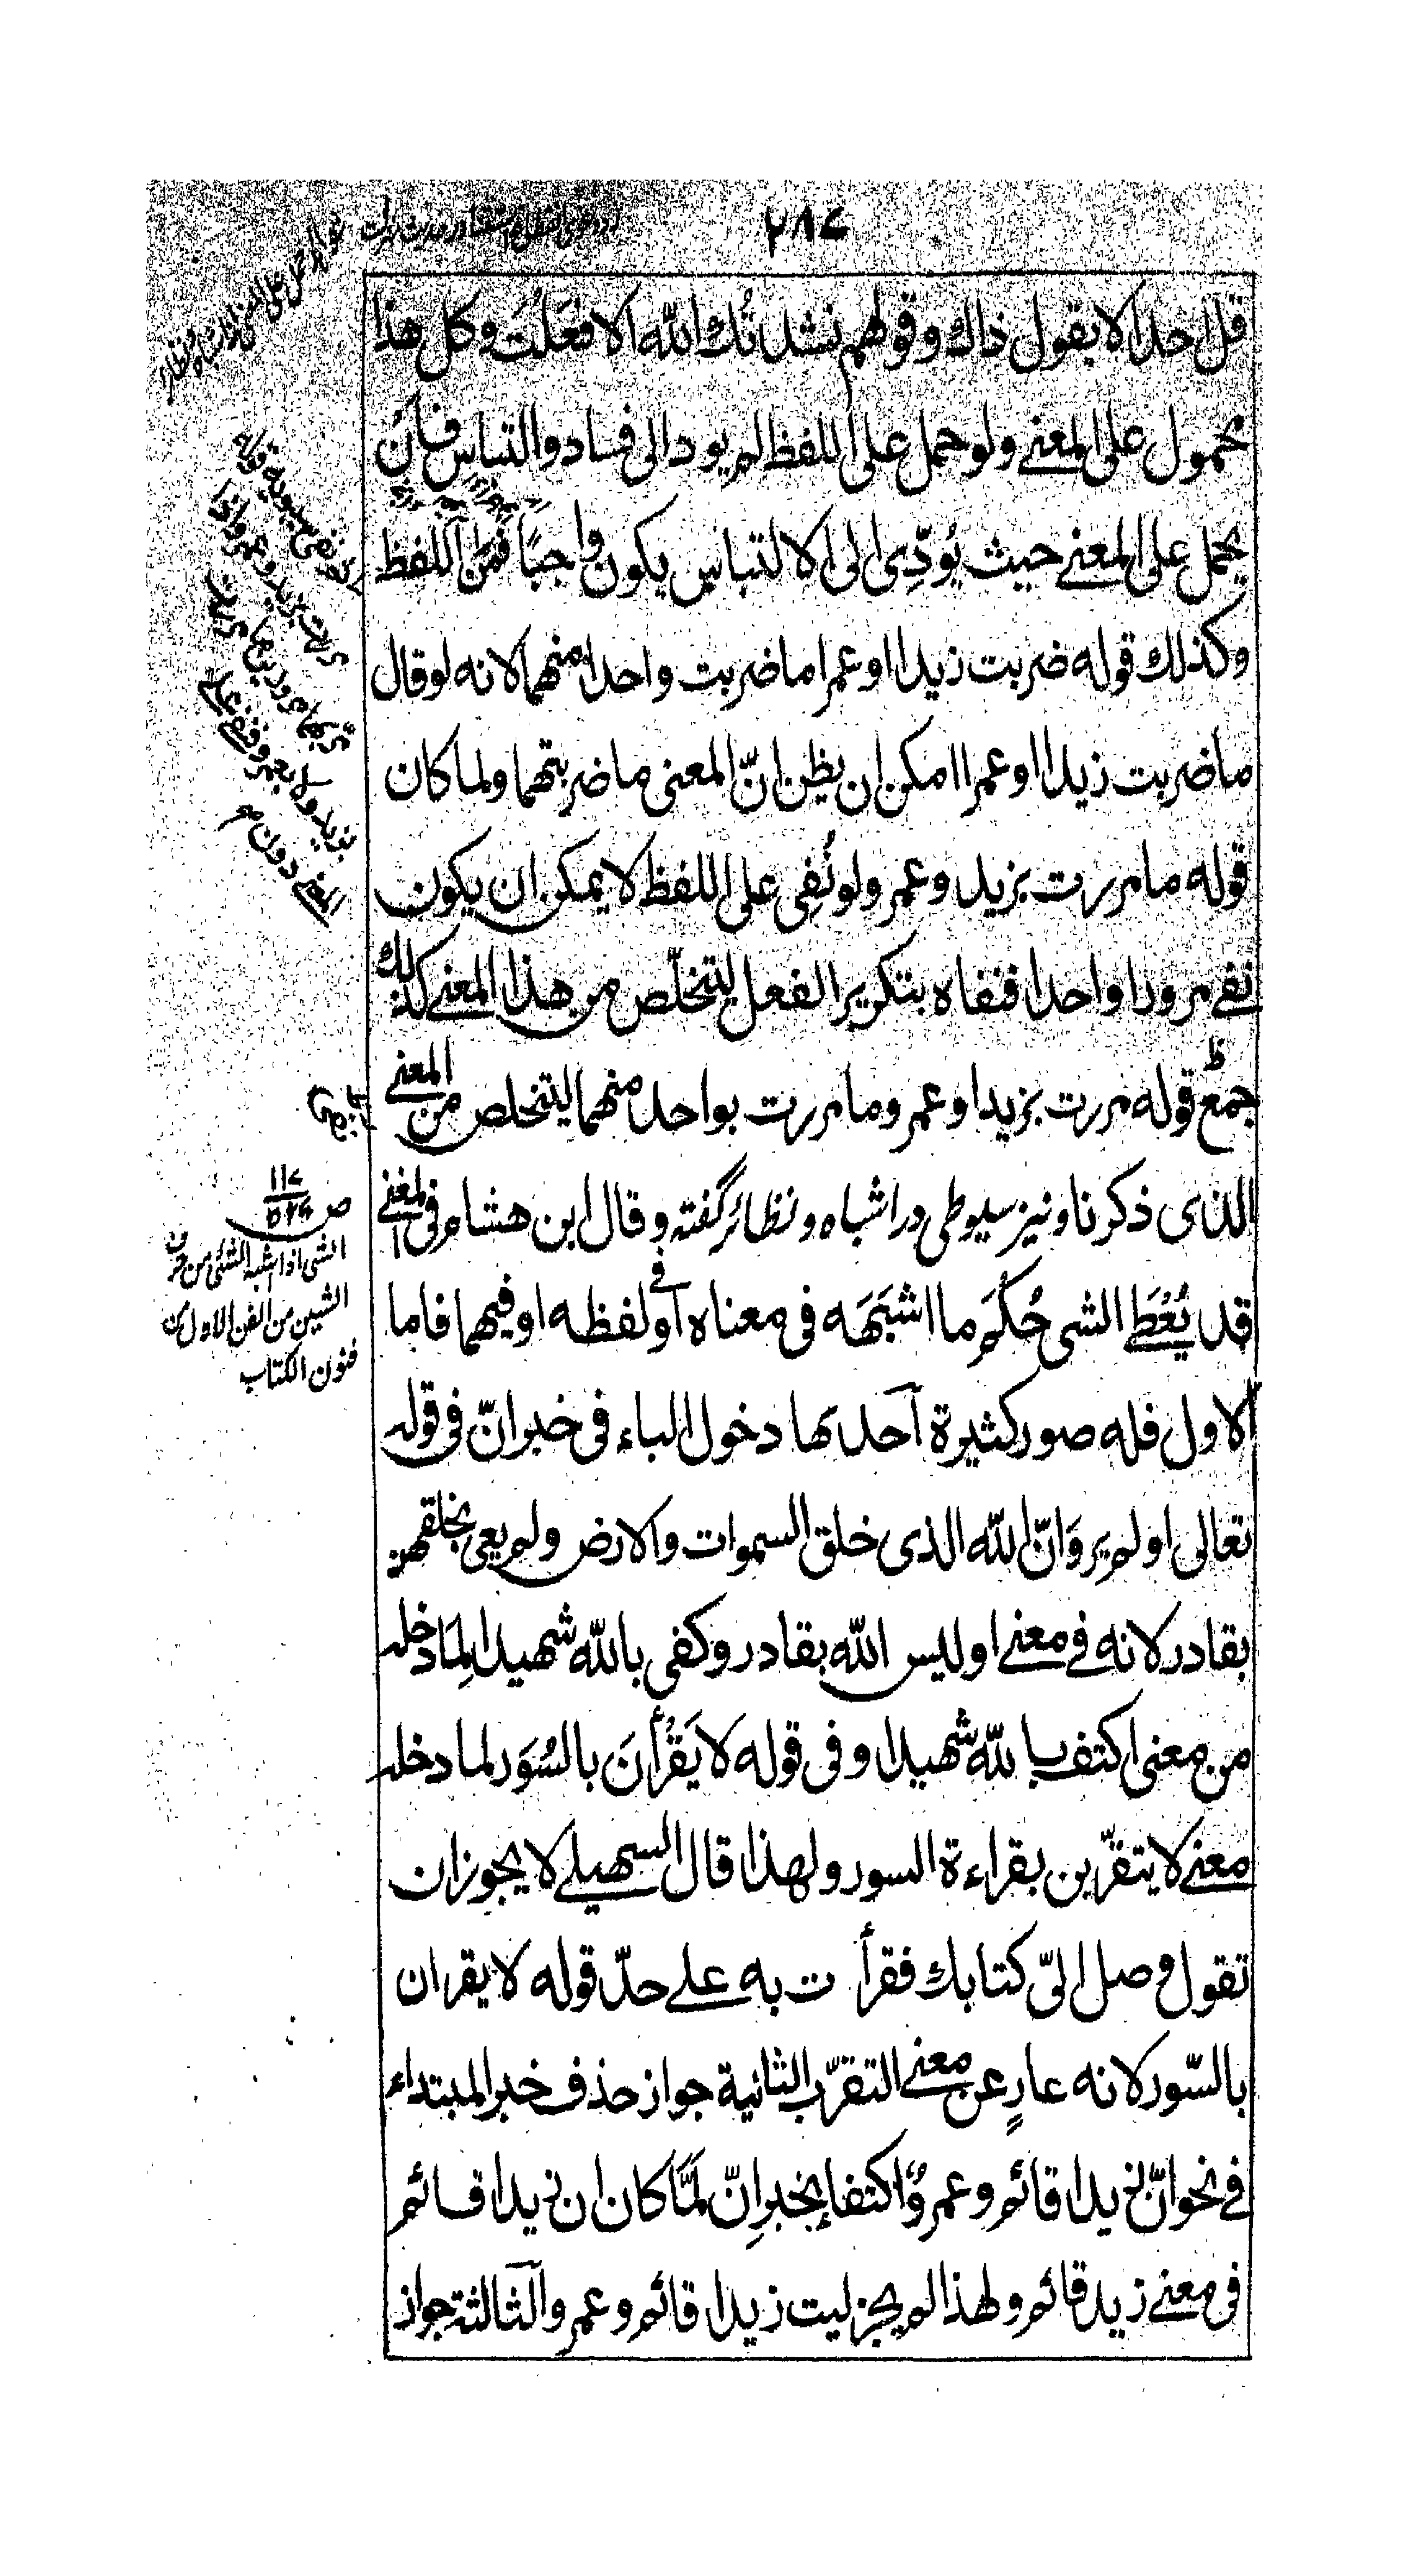 ٢٨٧
قل احدا الا يقول ذاك وقولهم نشدتك الله الا فعلت وكل هذا
محمول على المعنى ولو حمل على اللفظ لم يود الى فساد والتباس فان
يحمل على المعنى حيث يُودّى الى الالتباس يكون واجبًا فمن اللفظ
وكذلك قوله ضربت زيدا او عمرا ما ضربت واحدا منهما لانه لو قال
ما ضربت زيدا او عمرا امكن ان يظن انّ المعنى ما ضربتهما ولما كان
قوله ما مررت بزيد وعمرو لو نُفِى على اللفظ لا يمكن ان يكون
نفى مرورا واحدا فنفاه بتكرير الفعل ليتخلّص من هذا المعنى كذلك
جمع قوله مررت بزيد او عمرو ما مررت بواحد منهما ليتخلص من المعنى
الذى ذكرنا ونيز سيوطى در اشباه ونظائر گفته وقال ابن هشام فى المغنى
قد يُعْطَى الشى حُكمَ ما اشبَهَه فى معناه او فى لفظه او فيهما فاما
الاول فله صور كثيرة احدىها دخول الباء فى خبر انّ فى قوله
تعالى اولم يروَا انّ الله الذى خلق السموات والارض ولم يعى بخلقهن
بقادر لانه فى معنى اوليس الله بقادر وكفى بالله شهيدا لِمَا دخله
من معنى اكتف بالله شهيدا وفى قوله لا يَقْرُأنَ بالسُوَر لما دخله
معنى لا يتقرّبن بقراءة السور ولهذا قال السهيلى لا يجوز ان
تقول وصل الىّ كتابك فقرأت به على حدّ قوله لا يقران
بالسّور لانه عارٍ عن معنى التقرّب الثانية جواز حذف خبر المبتداء
فى نحو انّ زيدا قائم وعمروٌ اكتفاء بخبر انّ لمّا كان ان زيدا قائم
فى معنى زيد قائم ولهذا لم يجز ليت زيدا قائم وعمرو الثالثة جواز
ص ١١٧
٥٢٤
الشى اذا اشبه الشئ من حرف
الشين من الفن الاول من
فنون الكتاب